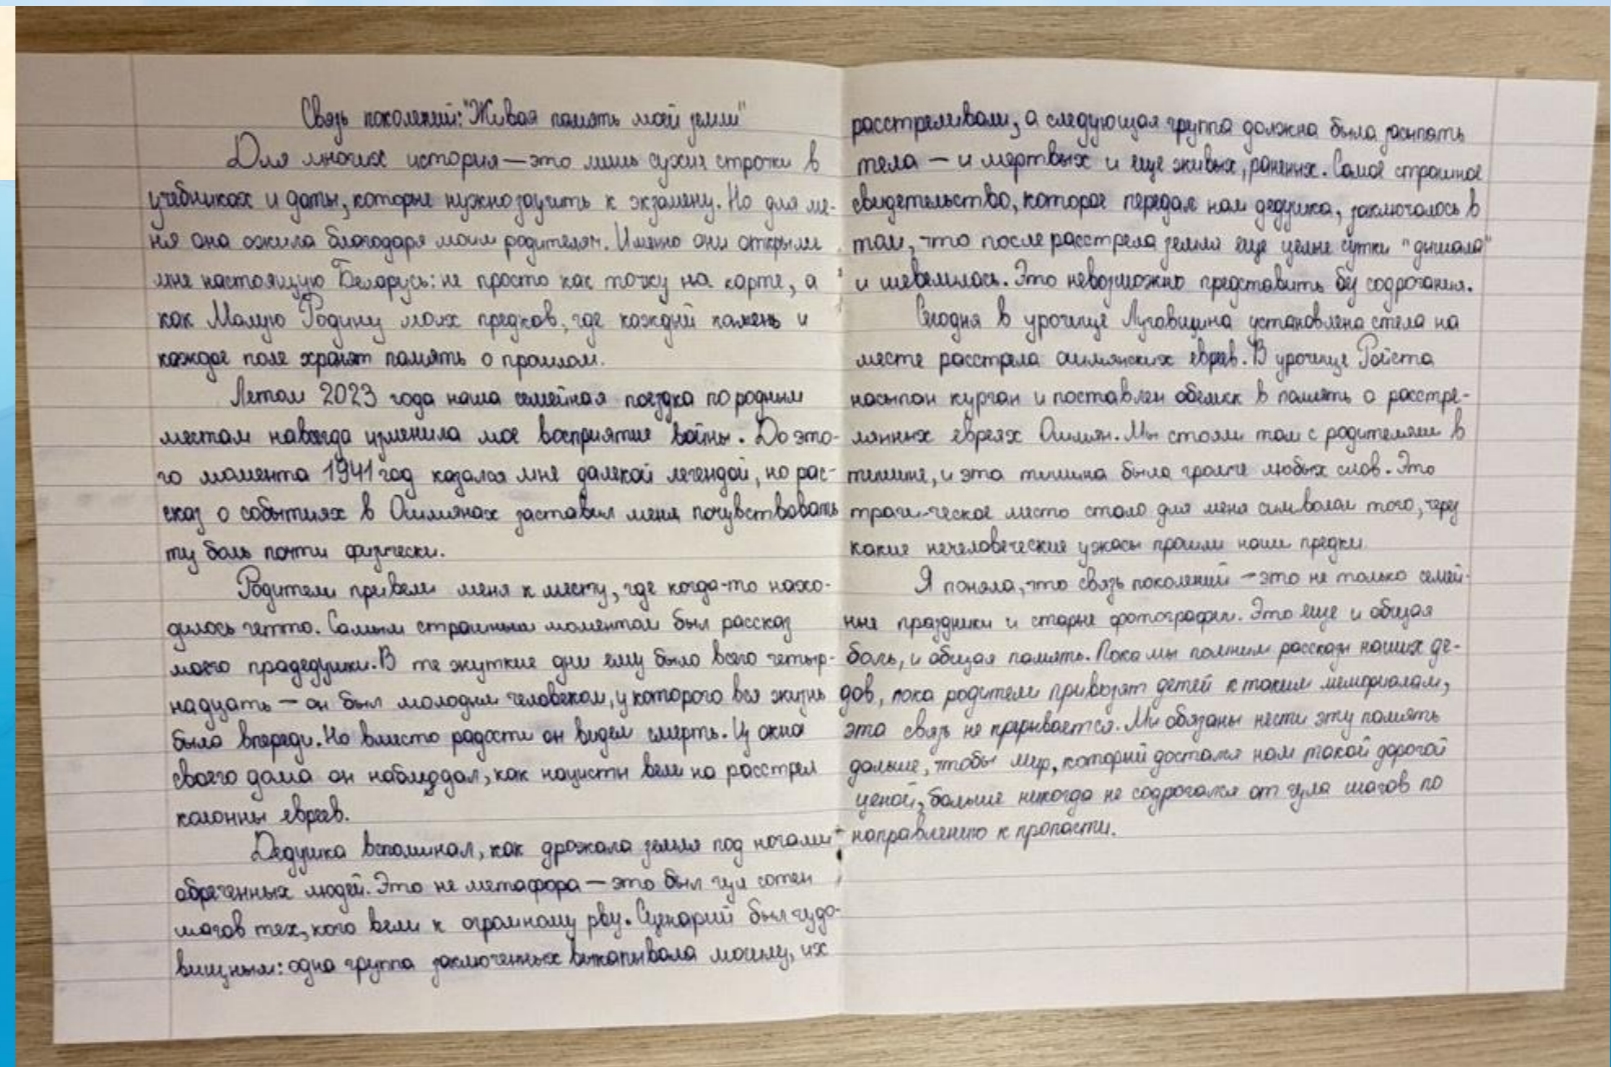 Связь поколений: "Живая память моей земли"
Для многих история — это лишь сухие строчки в
учебниках и даты, которые нужно заучить к экзамену. Но для ме-
ня она ожила благодаря моим родителям. Именно они открыли
мне настоящую Беларусь: не просто как точку на карте, а
как Малую Родину моих предков, где каждый камень и
каждое поле хранят память о прошлом.
Летом 2023 года наша семейная поездка по родным
местам навсегда изменила мое восприятие войны. До это-
го момента 1941 год казался мне далекой легендой, но рас-
сказ о событиях в Ошмянах заставил меня почувствовать
ту боль почти физически.
Родители привели меня к месту, где когда-то нахо-
дилось гетто. Самым страшным моментом был рассказ
моего прадедушки. В те жуткие дни ему было всего четыр-
надцать — он был молодым человеком, у которого вся жизнь
была впереди. Но вместо радости он видел смерть. Из окна
своего дома он наблюдал, как нацисты вели на расстрел
колонны евреев.
Дедушка вспоминал, как дрожала земля под ногами
обреченных людей. Это не метафора — это был гул сотен
шагов тех, кого вели к огромному рву. Сценарий был чудо-
вищным: одна группа заключенных выкапывала могилу, их
расстреливали, а следующая группа должна была засыпать
тела — и мертвых и еще живых, раненых. Самое страшное
свидетельство, которое передал нам дедушка, заключалось в
том, что после расстрела земля еще целые сутки "дышала"
и шевелилась. Это невозможно представить без содрогания.
Сегодня в урочище Луговщина установлена стела на
месте расстрела ошмянских евреев. В урочище Ройста
насыпан курган и поставлен обелиск в память о расстре-
лянных евреях Ошмян. Мы стояли там с родителями в
тишине, и эта тишина была громче любых слов. Это
трагическое место стало для меня символом того, через
какие нечеловеческие ужасы прошли наши предки.
Я поняла, что связь поколений — это не только семей-
ные праздники и старые фотографии. Это еще и общая
боль, и общая память. Пока мы помним рассказы наших де-
дов, пока родители привозят детей к таким мемориалам,
эта связь не прерывается. Мы обязаны нести эту память
дальше, чтобы мир, который достался нам такой дорогой
ценой, больше никогда не содрогался от гула шагов по
направлению к пропасти.